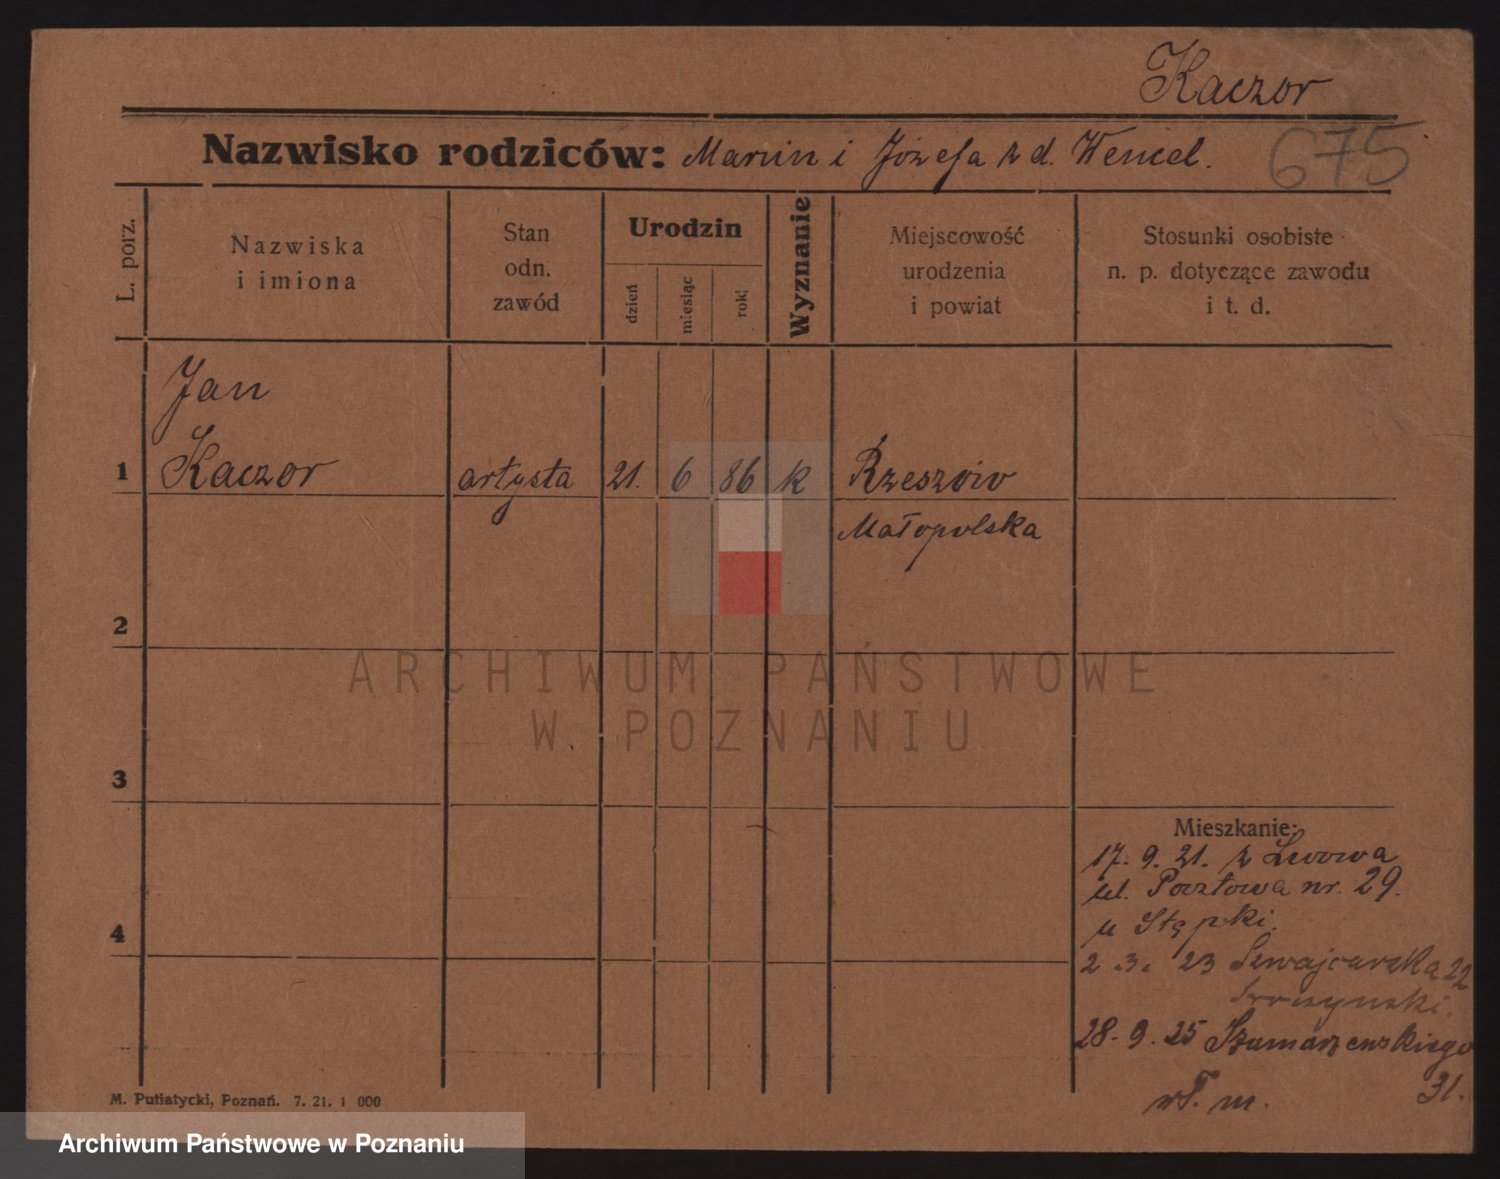 Kaczor
Nazwisko rodziców: Marcin i Józefa z d. Wencel.
675
L. porz.
Nazwiska
i imiona
Stan
odn.
zawód
Urodzin
dzień
miesiąc
rok
Wyznanie
Miejscowość
urodzenia
i powiat
Stosunki osobiste
n. p. dotyczące zawodu
i t. d.
Jan
1 Kaczor artysta 21. 6 86 k Rzeszów
Małopolska
2
3
4
Mieszkanie:
17. 9. 21. z Lwowa
ul. Pocztowa nr. 29.
u Stępki.
2. 3. 23 Szwajcarska 22
28. 9. 25 Szamarzewskiego
31.
wł. m.
M. Putiatycki, Poznań. 7. 21. 1 000
ARCHIWUM PAŃSTWOWE
W POZNANIU
Archiwum Państwowe w Poznaniu